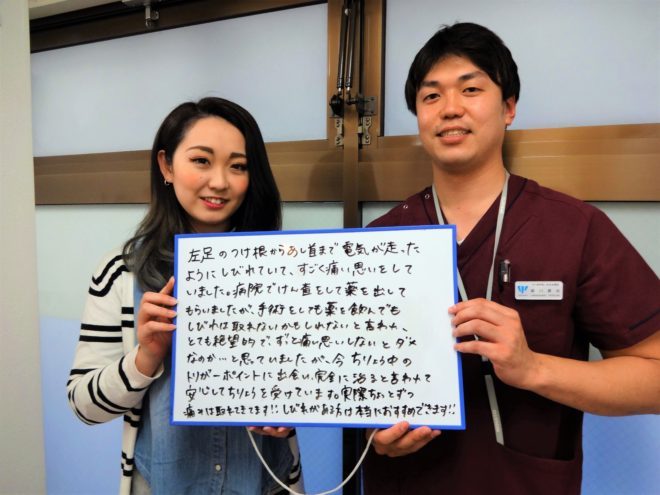 左足のつけ根からあし首まで電気が走った
ようにしびれていて、すごく痛い思いをして
いました。病院でけん査をして薬を出して
もらいましたが、手術をしても薬を飲んでも
しびれは取れないかもしれないと言われ、
とても絶望的で、ずっと痛い思いしないとダメ
なのか…と思っていましたが、今ちりょう中の
トリガーポイントに出会い、完全に治ると言われて
安心してちりょうを受けています。実際ちょっとずつ
痛みは取れてきてます!!しびれがある方は本当におすすめできます!!